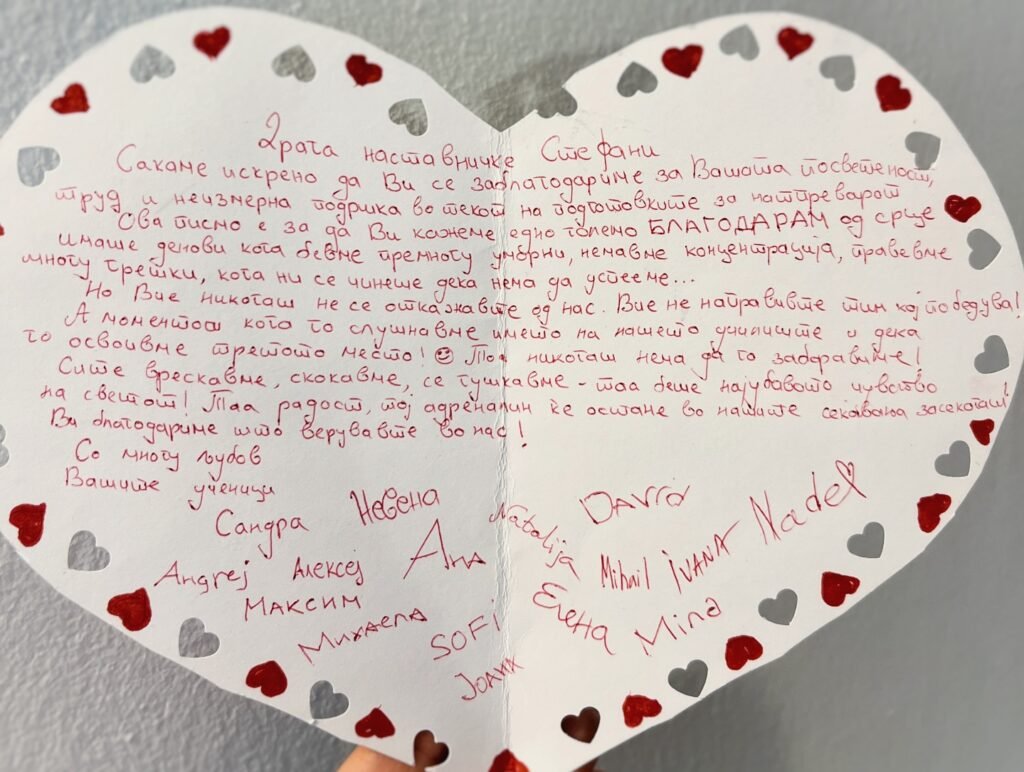 Драга наставничке Стефани
Сакаме искрено да Ви се заблагодариме за Вашата посветеност,
труд и неизмерна подршка во текот на подготовките за натпреварот
Ова писмо е за да Ви кажеме едно големо БЛАГОДАРАМ од срце
имаше денови кога бевме премногу уморни, немавме концентрација, правевме
многу грешки, кога ни се чинеше дека нема да успееме...
Но Вие никогаш не се откажавте од нас. Вие не направивте тим кој победува!
А моментот кога го слушнавме името на нашето училиште и дека
го освоивме третото место! ☺ Тоа никогаш нема да го заборавиме!
Сите врескавме, скокавме, се гушкавме - тоа беше најубавото чувство
на светот! Таа радост, тој адреналин ќе остане во нашите секавања засекогаш!
Ви благодариме што верувавте во нас!
Со многу љубов
Вашите ученици
Сандра Невена Natalija David
Andrej Алексеј Ana Mihail Ivana Nadel
Максим Елена Mina
Михаела SOFI